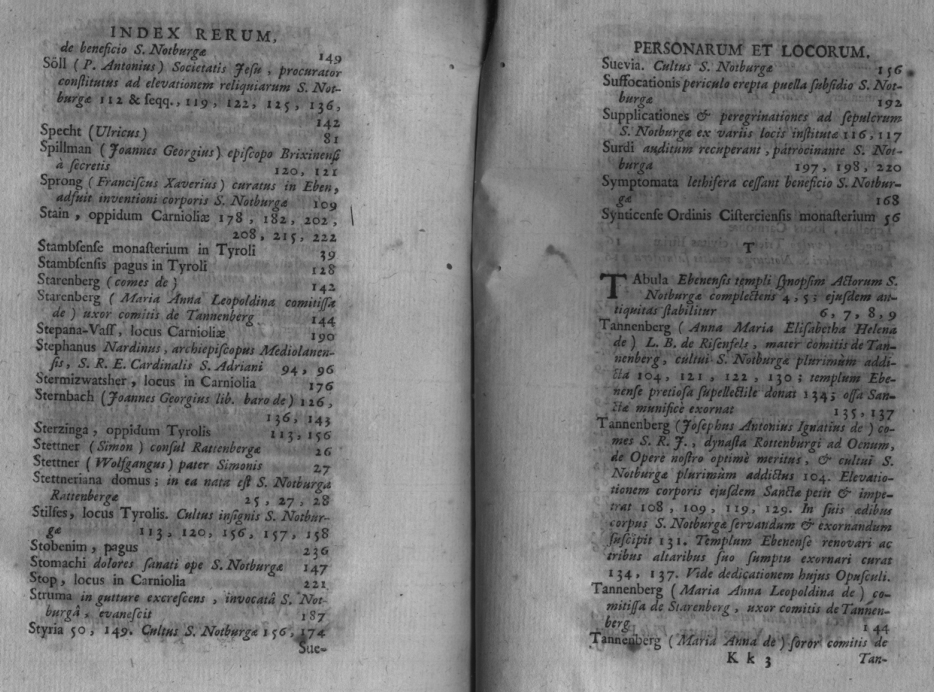 INDEX RERUM,
de beneficio S. Notburgæ 149
Söll (P. Antonius) Societatis Jesu, procurator
constitutus ad elevationem reliquiarum S. Not-
burgæ 112 & seqq., 119, 122, 125, 136,
142
Specht (Ulricus) 81
Spillman (Joannes Georgius) episcopo Brixinensi
à secretis 120, 121
Sprong (Franciscus Xaverius) curatus in Eben,
adfuit inventioni corporis S. Notburgæ 109
Stain, oppidum Carnioliæ 178, 182, 202,
208, 215, 222
Stambsense monasterium in Tyroli 39
Stambsensis pagus in Tyroli 128
Starenberg (comes de) 142
Starenberg (Maria Anna Leopoldina comitissa
de) uxor comitis de Tannenberg 144
Stepana-Vass, locus Carnioliæ 190
Stephanus Nardinus, archiepiscopus Mediolanen-
sis, S. R. E. Cardinalis S. Adriani 94, 96
Stermizwatsher, locus in Carniolia 176
Sternbach (Joannes Georgius lib. baro de) 126,
136, 143
Sterzinga, oppidum Tyrolis 113, 156
Stettner (Simon) consul Rattenbergæ 26
Stettner (Wolfgangus) pater Simonis 27
Stettneriana domus; in ea nata est S. Notburga
Rattenbergæ 25, 27, 28
Stilfes, locus Tyrolis. Cultus insignis S. Notbur-
gæ 113, 120, 156, 157, 158
Stobenim, pagus 236
Stomachi dolores sanati ope S. Notburgæ 147
Stop, locus in Carniolia 221
Struma in gutture excrescens, invocatâ S. Not-
burgâ, evanescit 187
Styria 50, 149. Cultus S. Notburgæ 156, 174
Sue-
PERSONARUM ET LOCORUM.
Suevia. Cultus S. Notburgæ 156
Suffocationis periculo erepta puella subsidio S. Not-
burgæ 192
Supplicationes & peregrinationes ad sepulcrum
S. Notburgæ ex variis locis institutæ 116, 117
Surdi auditum recuperant, patrocinante S. Not-
burga 197, 198, 220
Symptomata lethifera cessant beneficio S. Notbur-
gæ 168
Synticense Ordinis Cisterciensis monasterium 56
T
TAbula Ebenensis templi synopsim Actorum S.
Notburgæ complectens 4, 5; ejusdem an-
tiquitas stabilitur 6, 7, 8, 9
Tannenberg (Anna Maria Elisabetha Helena
de) L. B. de Risenfels, mater comitis de Tan-
nenberg, cultui S. Notburgæ plurimùm addi-
cta 104, 121, 122, 130; templum Ebe-
nense pretiosa supellectile donat 134; ossa San-
ctæ munificè exornat 135, 137
Tannenberg (Josephus Antonius Ignatius de) co-
mes S. R. J., dynasta Rottenburgi ad Oenum,
de Opere nostro optimè meritus, & cultui S.
Notburgæ plurimùm addictus 104. Elevatio-
tionem corporis ejusdem Sanctæ petit & impe-
trat 108, 109, 119, 129. In suis ædibus
corpus S. Notburgæ servandum & exornandum
suscipit 131. Templum Ebenense renovari ac
tribus altaribus suo sumptu exornari curat
134, 137. Vide dedicationem hujus Opusculi.
Tannenberg (Maria Anna Leopoldina de) co-
mitissa de Starenberg, uxor comitis de Tannen-
berg 144
Tannenberg (Maria Anna de) soror comitis de
K k 3 Tan-